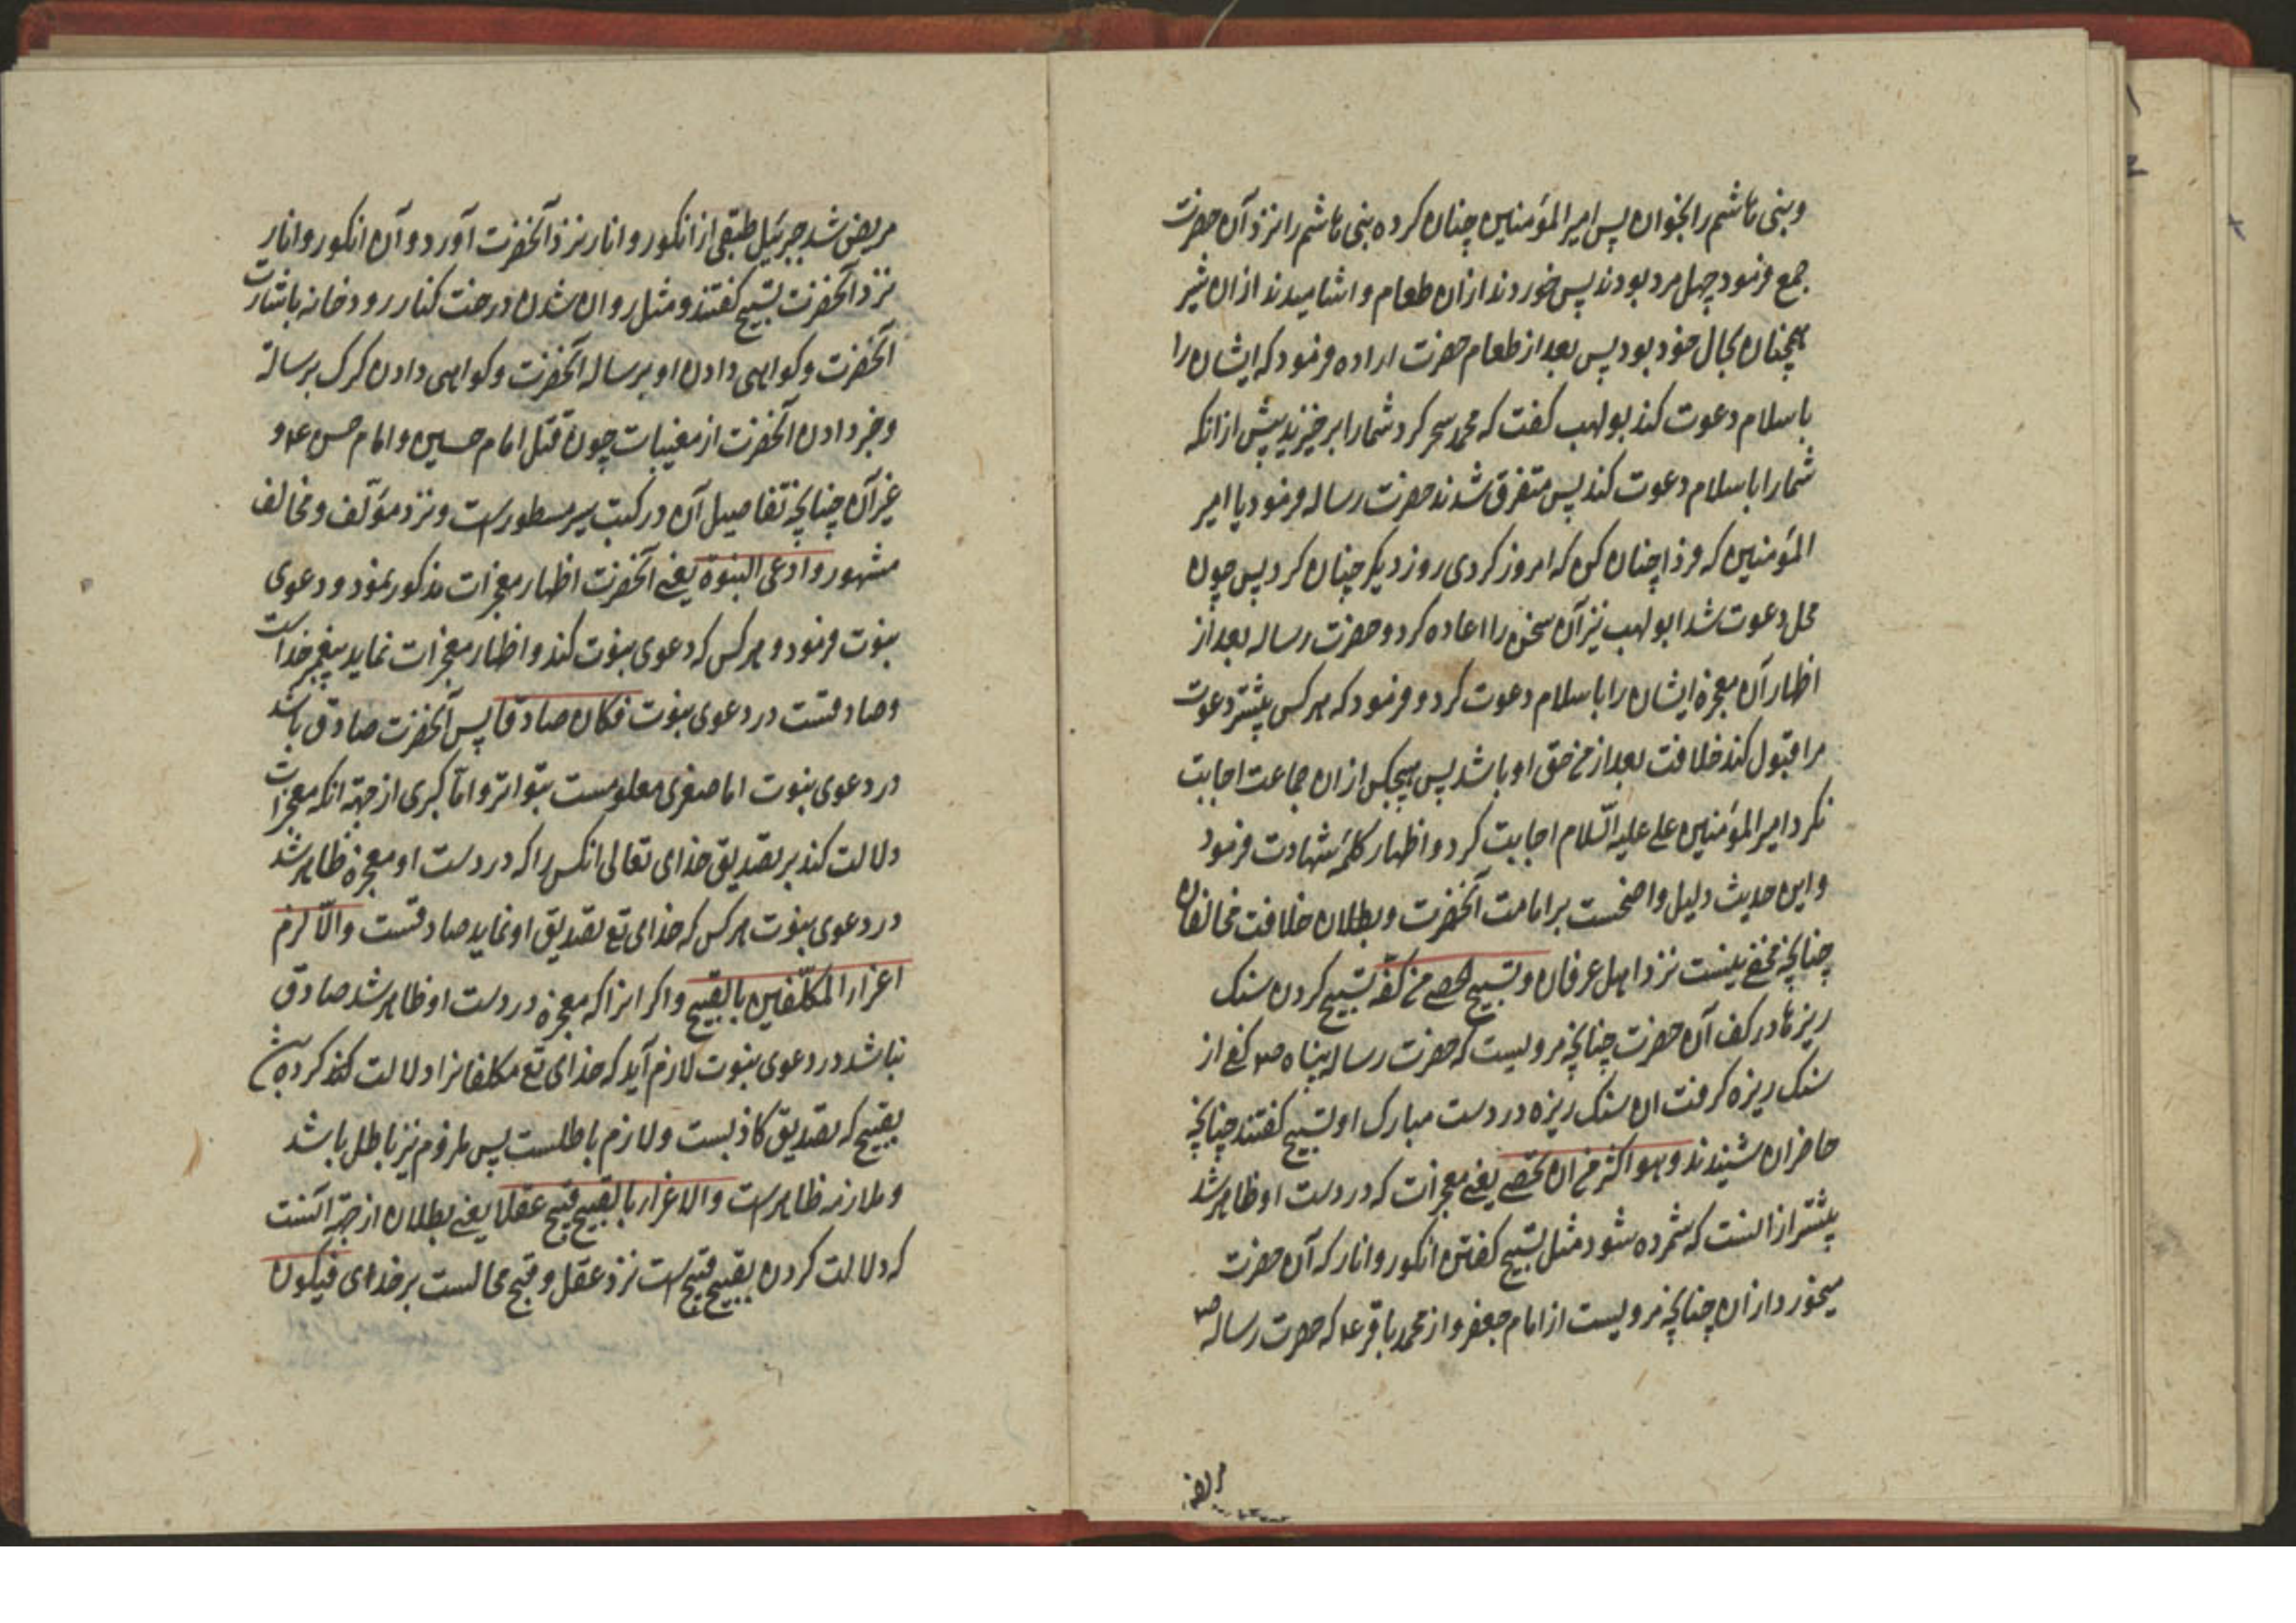 وبنی هاشم را بخوان پس امیر المؤمنین چنان کرده بنی هاشم را نزد آن حضرت
جمع فرمود چهل مرد بودند پس خوردند ازان طعام و اشامیدند ازان شیر
همچنان بحال خود بود پس بعد از طعام حضرت اراده فرمود که ایشان را
باسلام دعوت کند بولهب کفت که محمد سحر کرد شما را برخیزید پیش ازانکه
شما را باسلام دعوت کند پس متفرق شدند حضرت رساله فرمود یا امیر
المؤمنین که فردا چنان کن که امروز کردی روز دیکر چنان کرد پس چون
محل دعوت شد ابولهب نیز آن سخن را اعاده کرد و حضرت رساله بعد از
اظهار آن معجزه ایشان را باسلام دعوت کرد و فرمود که هر کس پیشتر دعوت
مرا قبول کند خلافت بعد از من حق او باشد پس هیچکس ازان جماعت اجابت
نکرد امیر المؤمنین علی علیه السّلام اجابت کرد و اظهار کلمۀ شهادت فرمود
و این حدیث دلیل واضحست بر امامت آنحضرت و بطلان خلافت مخالفان
چنانچه مخفی نیست نزد اهل عرفان وتسبیح الحصی من کفّه تسبیح کردن سنک
ریزها در کف آن حضرت چنانچه مرویست که حضرت رساله پناه ص کفی از
سنک ریزه کرفت ان سنک ریزه در دست مبارک او تسبیح کفتند چنانچه
حاضران شنیدند وهو اکثر من ان تحصی یعنی معجزات که در دست او ظاهر شد
پیشتر ازانست که شمرده شود مثل تسبیح کفتن انکور و انار که آن حضرت
میخورد ازان چنانچه مرویست از امام جعفر و از محمد باقر ع که حضرت رساله ص
مریض
مریض شد جبرئیل طبقی از انکور و انار نزد آنحضرت آورد و آن انکور و انار
نزد آنحضرت تسبیح کفتند و مثل روان شدن درخت کنار رودخانه باشارت
آنحضرت و کواهی دادن او برساله آنحضرت و کواهی دادن کرک برسالة
وخبر دادن آنحضرت از مغیبات چون قتل امام حسین و امام حسن ع و
غیر آن چنانچه تفاصیل آن در کتب سیر مسطورست و نزد مؤلف و مخالف
مشهور وادعی النبوة یعنی آنحضرت اظهار معجزات مذکور نمود و دعوی
نبوت فرمود و هر کس که دعوی نبوت کند و اظهار معجزات نماید پیغمبر خداست
وصادقست در دعوی نبوت فکان صادقا پس آنحضرت صادق باشد
در دعوی نبوت اما صغری معلومست بتواتر و امّا کبری از جهة انکه معجزات
دلالت کند بر تصدیق خدای تعالی انکس را که در دست او معجزه ظاهر شد
در دعوی نبوت هر کس که خدای تع تصدیق او نماید صادقست والّا لزم
اغراء المکلّفین بالقبیح و اکر انرا که معجزه در دست او ظاهر شد صادق
نباشد در دعوی نبوت لازم آید که خدای تع مکلفانرا دلالت کند کرده باشد
بقبیح که تصدیق کاذبست و لازم باطلست پس ملزوم نیز باطل باشد
و ملازمه ظاهرست والاغراء بالقبیح قبیح عقلا یعنی بطلان از جهة آنست
که دلالت کردن بقبیح قبیح است نزد عقل و قبح محالست بر خدای فیکون